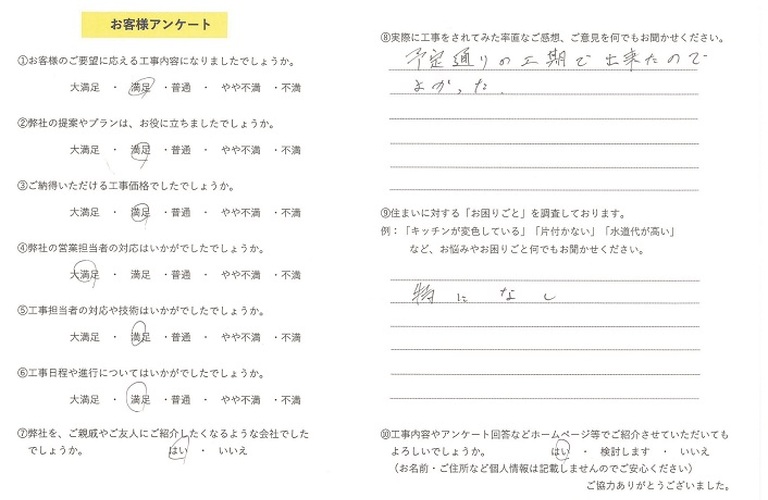 お客様アンケート
①お客様のご要望に応える工事内容になりましたでしょうか。
大満足 ・ 満足 ・普通 ・ やや不満 ・不満
②弊社の提案やプランは、お役に立ちましたでしょうか。
大満足 ・ 満足 ・普通 ・ やや不満 ・不満
③ご納得いただける工事価格でしたでしょうか。
大満足 ・ 満足 ・普通 ・ やや不満 ・不満
④弊社の営業担当者の対応はいかがでしたでしょうか。
大満足 ・ 満足 ・普通 ・ やや不満 ・不満
⑤工事担当者の対応や技術はいかがでしたでしょうか。
大満足 ・ 満足 ・普通 ・ やや不満 ・不満
⑥工事日程や進行についてはいかがでしたでしょうか。
大満足 ・ 満足 ・普通 ・ やや不満 ・不満
⑦弊社を、ご親戚やご友人にご紹介したくなるような会社でした
でしょうか。 はい ・ いいえ
⑧実際に工事をされてみた率直なご感想、ご意見を何でもお聞かせください。
予定通りの工期で出来たので
よかった.
⑨住まいに対する「お困りごと」を調査しております。
例：「キッチンが変色している」「片付かない」「水道代が高い」
など、お悩みやお困りごと何でもお聞かせください。
特になし
⑩工事内容やアンケート回答などホームページ等でご紹介させていただいても
よろしいでしょうか。 はい ・ 検討します ・ いいえ
（お名前・ご住所など個人情報は記載しませんのでご安心ください）
ご協力ありがとうございました。